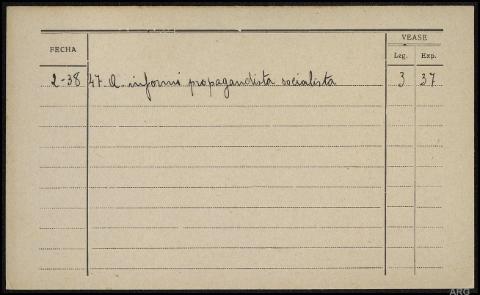 VEASE
FECHA
Leg. Exp.
2-38 47. Q. informi propagandista socialista 3 37
ARG